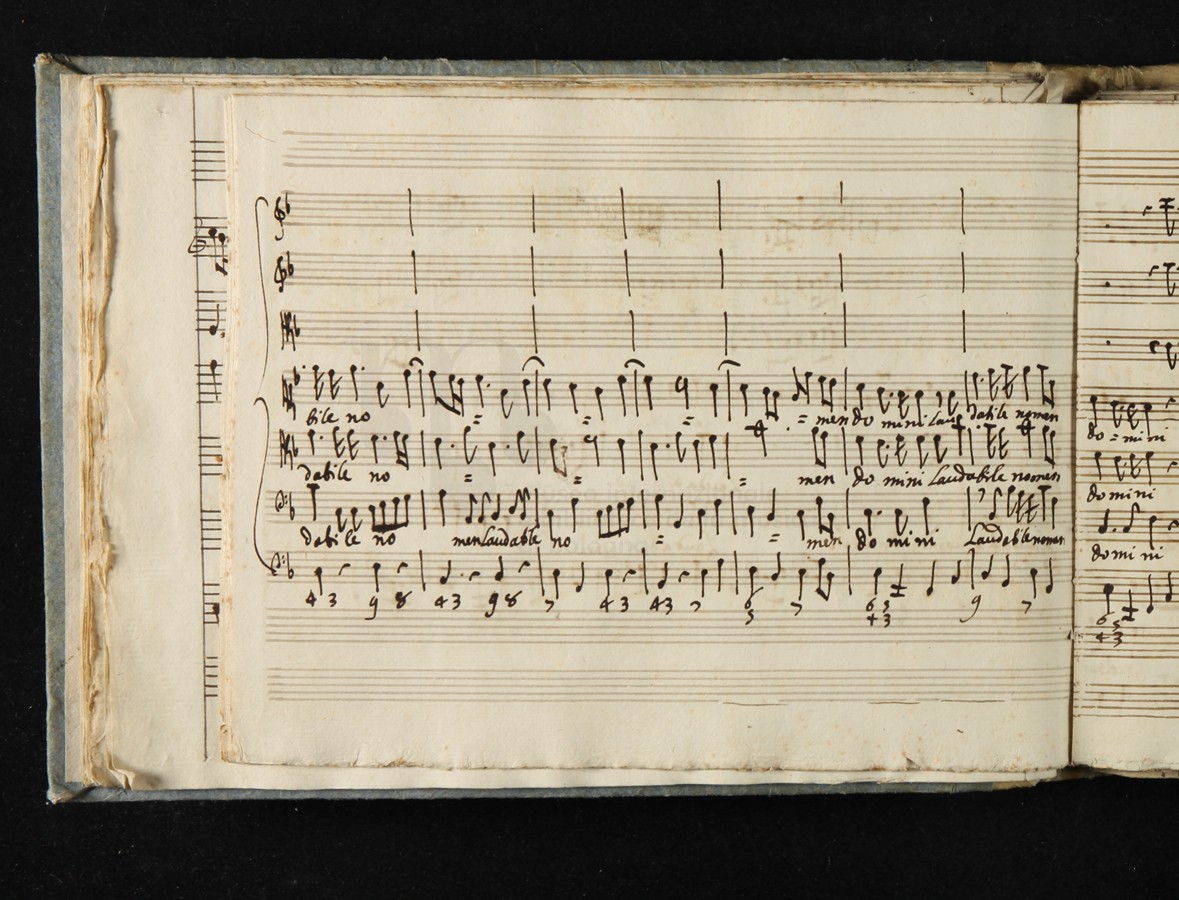 bile no = = = men do mini laudabile nomen
dabile no = = = men do mini laudabile nomen
dabile no men laudabile no = = men do mini laudabile nomen
4 3 9 8 4 3 9 8 7 4 3 4 3 7 6 7 6 5 9 7
5 4 3
do = mini
do mini
do mi ni
6 5
4 3